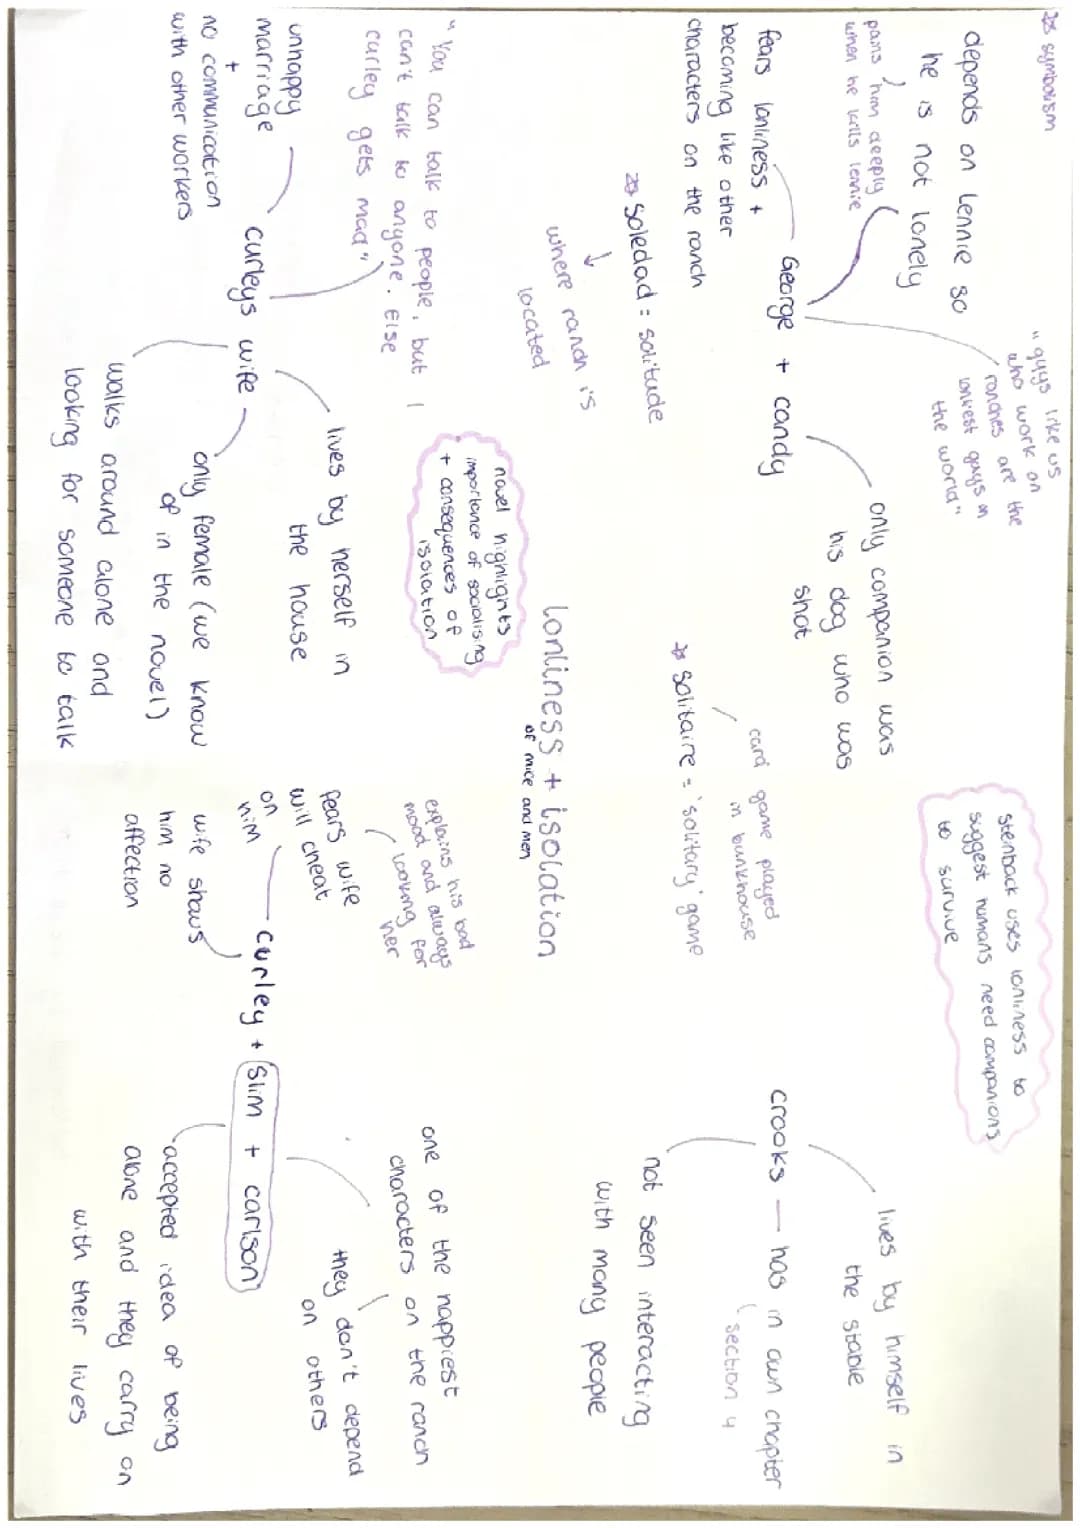 ✱ symbolism
depends on lennie so
he is not lonely
pains him deeply
when he kills lennie
fears lonliness +
becoming like other
characters on the ranch
George + candy
"guys like us
who work on
ranches are the
lonliest guys in
the world"
only companion was
his dog who was
shot
✱ soledad = solitude
where ranch is
located
card game played
in bunkhouse
✱ solitaire = 'solitary' game
steinback uses lonliness to
suggest humans need companions
to survive
lives by himself in
the stable
crooks — has in own chapter
section 4
not seen interacting
with many people
lonliness + isolation
of mice and men
novel highlights
importance of socialising
+ consequences of
isolation
"You can talk to people, but I
can't talk to anyone. Else
curley gets mad"
unhappy
marriage
+
no communication
with other workers
curleys wife
lives by herself in
the house
only female (we know
of in the novel)
walks around alone and
looking for someone to talk
explains his bad
mood and always
looking for
her
fears wife
will cheat
on
him
wife shows
him no
affection
curley + slim + carlson
one of the happiest
characters on the ranch
they don't depend
on others
accepted idea of being
alone and they carry on
with their lives